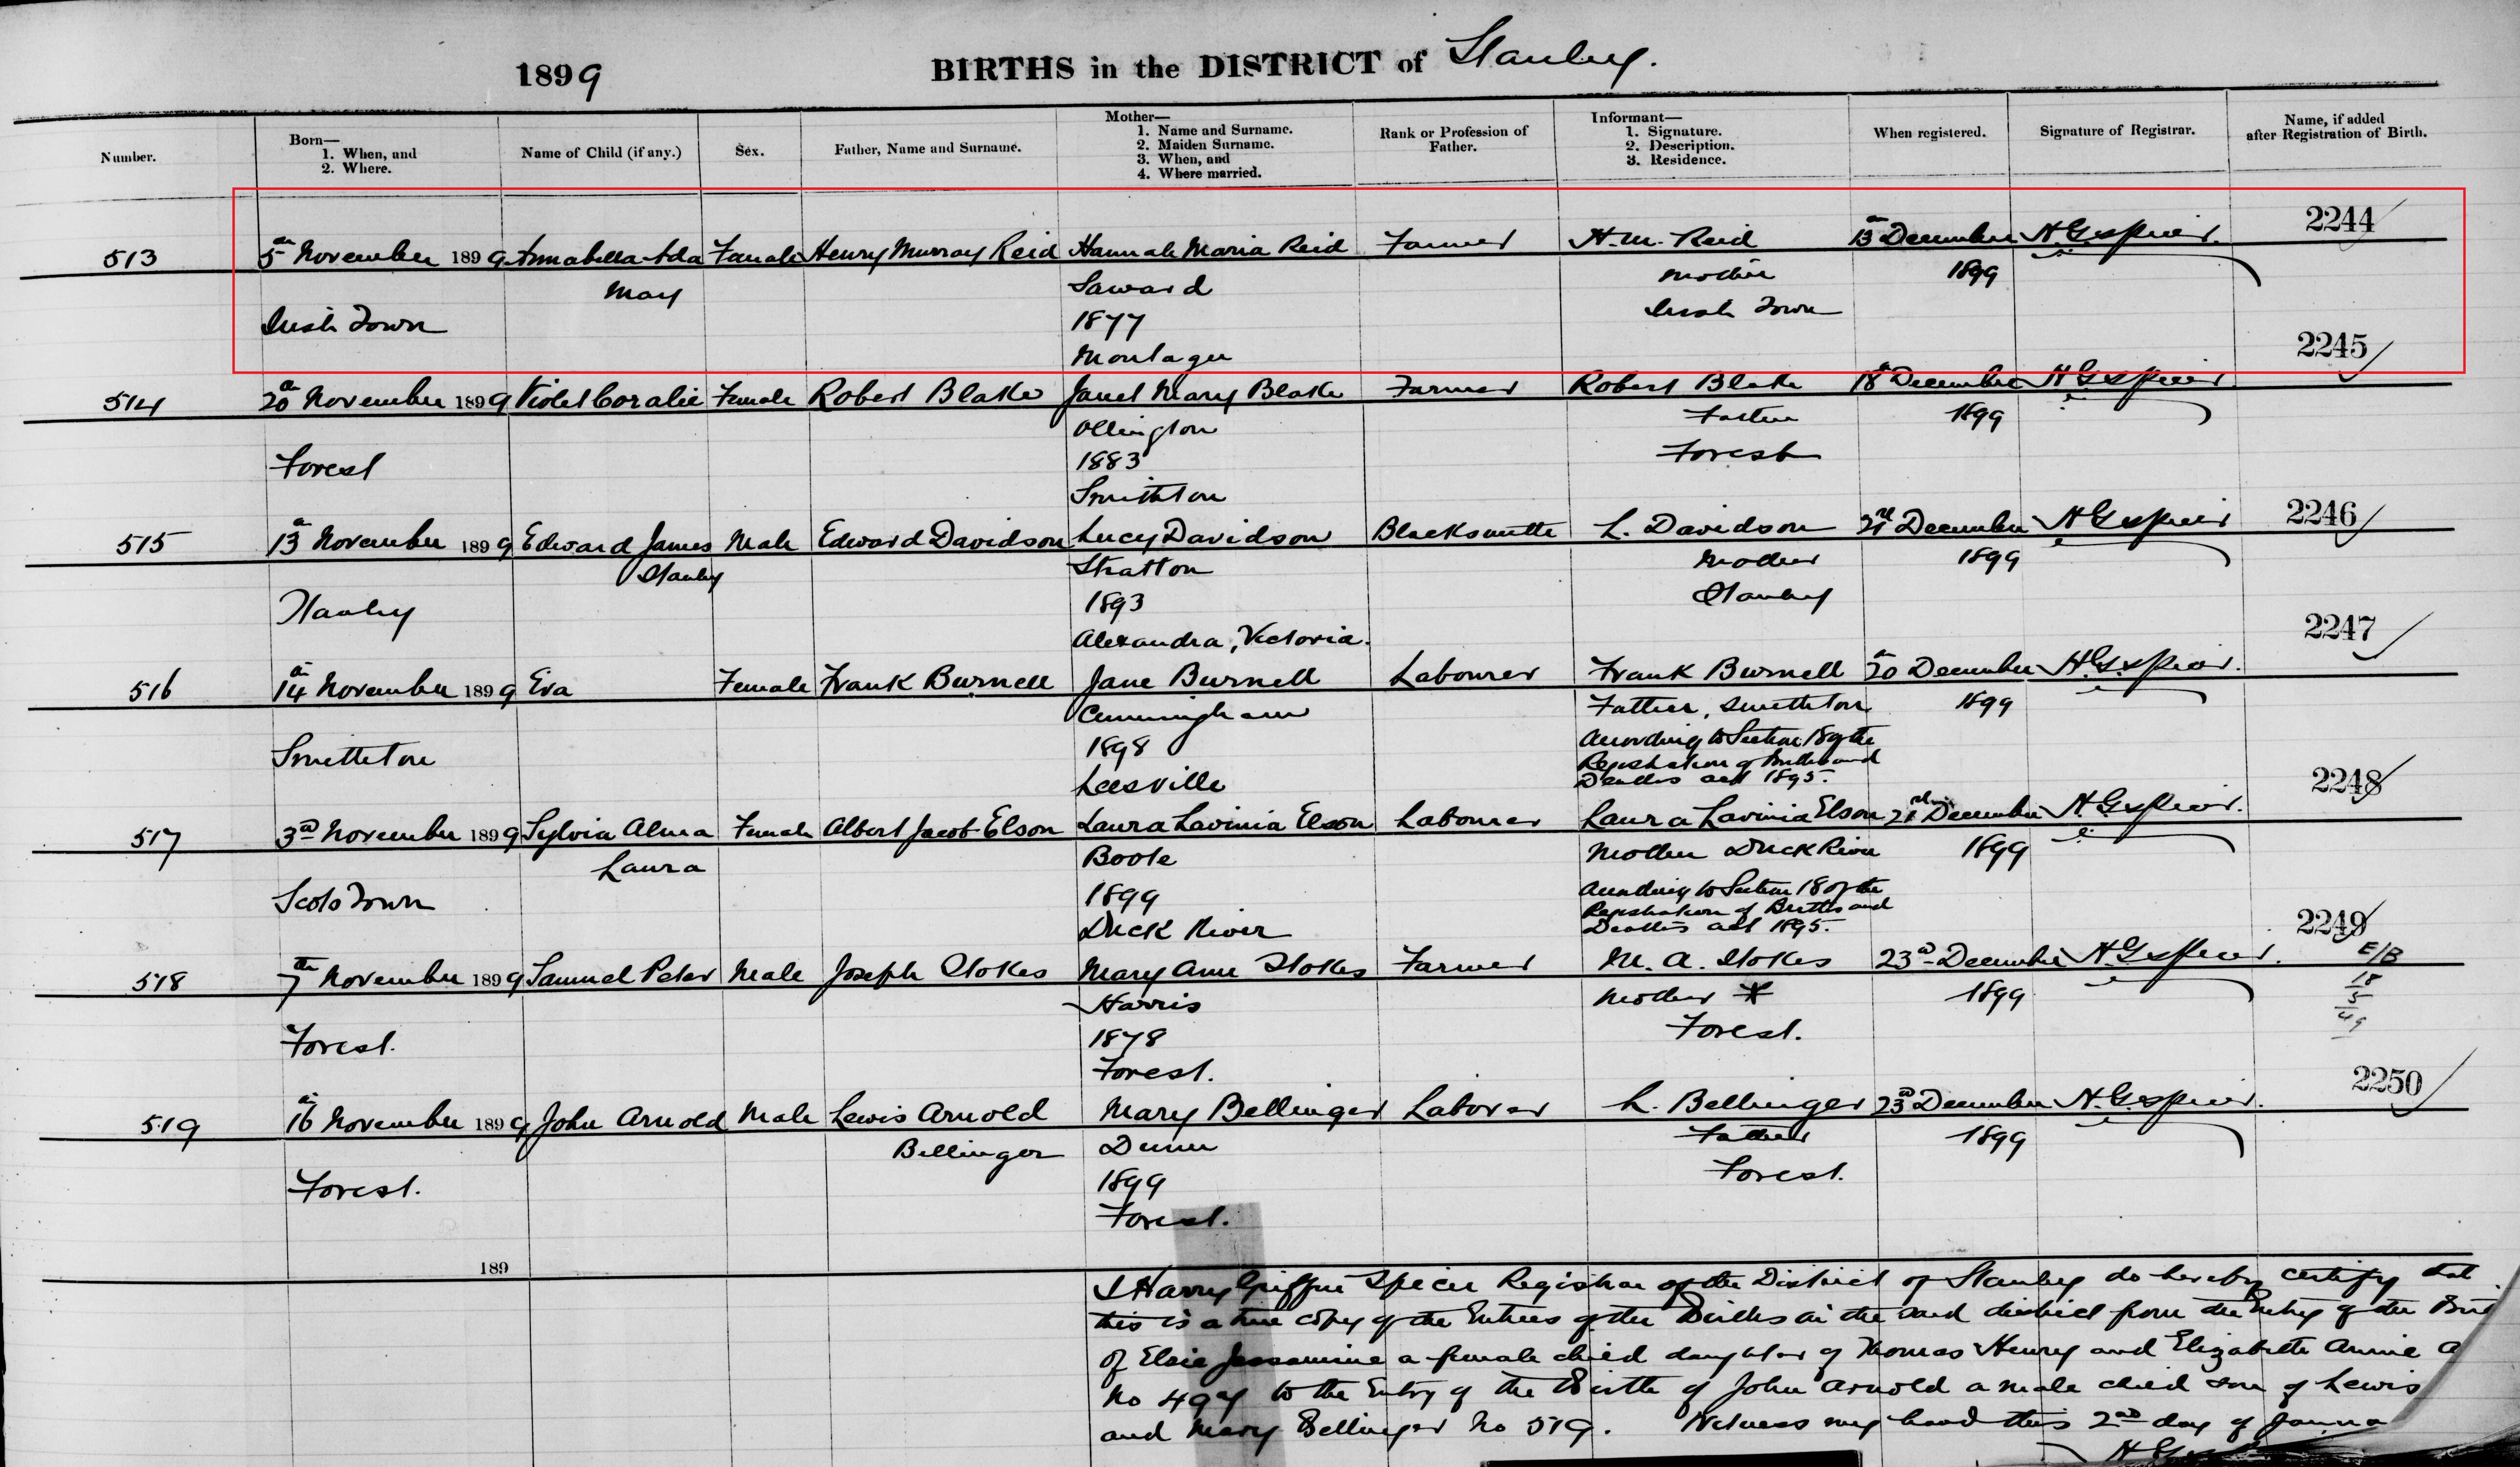 1899 BIRTHS in the DISTRICT of Stanley.
Number.
Born—
1. When, and
2. Where.
Name of Child (if any.)
Sex.
Father, Name and Surname.
Mother—
1. Name and Surname.
2. Maiden Surname.
3. When, and
4. Where married.
Rank or Profession of
Father.
Informant—
1. Signature.
2. Description.
3. Residence.
When registered.
Signature of Registrar.
Name, if added
after Registration of Birth.
2244
513 5th November 1899 Annabella Ada Female Henry Murray Reid Hannah Maria Reid Farmer H. M. Reid 13th December H G Spicer.
May Saward Mother 1899
Irish Town 1877 Irish Town
Montagu
2245
514 20th November 1899 Violet Coralie Female Robert Blake Janet Mary Blake Farmer Robert Blake 18th December H G Spicer.
Ollington Father 1899
Forest 1883 Forest
Smithton
2246
515 13th November 1899 Edward James Male Edward Davidson Lucy Davidson Blacksmith L. Davidson 21st December H G Spicer
Stanley Stratton Mother 1899
Stanley 1893 Stanley
Alexandra, Victoria.
2247
516 14th November 1899 Eva Female Frank Burnell Jane Burnell Labourer Frank Burnell 20th December H. G. Spicer.
Cunningham Father, Smithton 1899
Smithton 1898 According to Section 18 of the
Registration of Births and
Leesville Deaths act 1895.
2248
517 3rd November 1899 Sylvia Alma Female Albert Jacob Elson Laura Lavinia Elson Labourer Laura Lavinia Elson 21st December H. G. Spicer.
Laura Boote Mother Duck River 1899
Scots Town 1899 According to Section 18 of the
Registration of Births and
Duck River Deaths act 1895.
2249
518 7th November 1899 Samuel Peter Male Joseph Stokes Mary Ann Stokes Farmer M. A. Stokes 23rd December H G Spicer. E/B
Harris Mother 1899 18
5
49
Forest. 1878 Forest.
Forest.
2250
519 16th November 1899 John Arnold Male Lewis Arnold Mary Bellinger Labourer L. Bellinger 23rd December H. G. Spicer.
Bellinger Dunn Father 1899
Forest. 1899 Forest.
Forest.
189
I Harry Griffin Spicer Registrar of the District of Stanley do hereby certify that
this is a true copy of the Entries of the Births in the said district from the Entry of the Birt
of Elsie Jessamine a female child daughter of Thomas Henry and Elizabeth Annie
No 497 to the Entry of the Birth of John Arnold a male child son of Lewis
and Mary Bellinger No 519. Witness my hand this 2nd day of Janua
H G